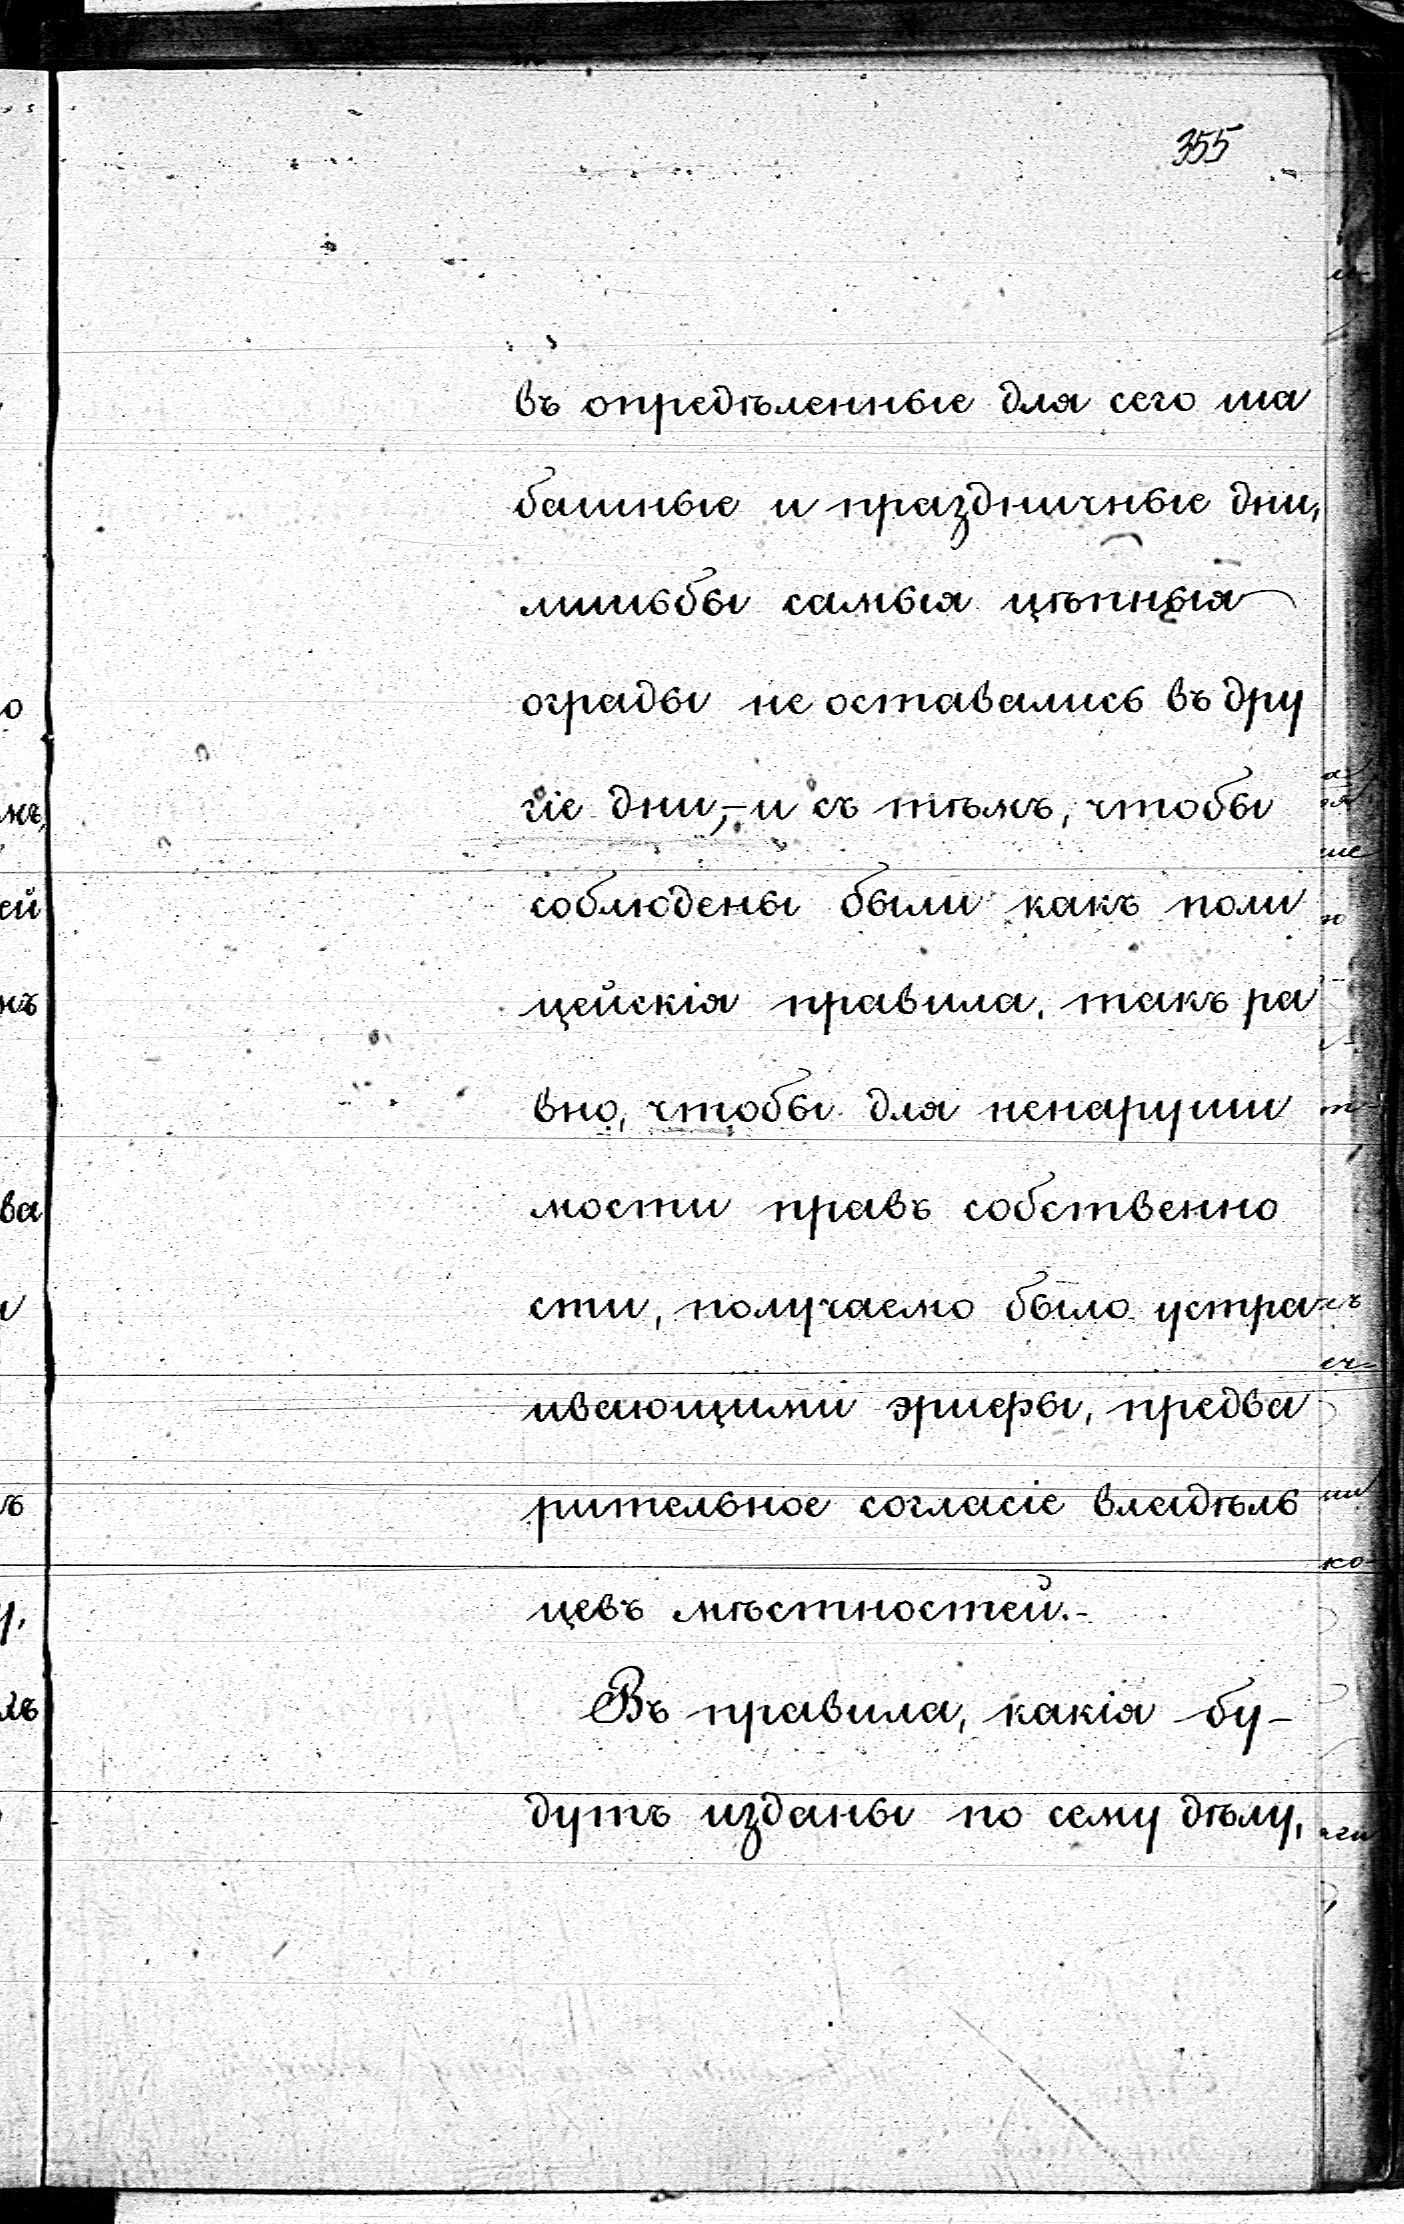 355
въ опредѣленные для сего ша
башные и праздничные дни,
лишьбы самыя цѣпныя
ограды не оставались въ дру
гіе дни,- и съ тѣмъ, чтобы
соблюдены были какъ поли
цейскія правила, такъ ра
вно, чтобы для ненаруши
мости правъ собственно
сти, получаемо было устра
ивающими эриефы, предва
рительное согласіе владѣль
цевъ мѣстностей.-
Въ правила, какія бу-
дутъ изданы по сему дѣлу,